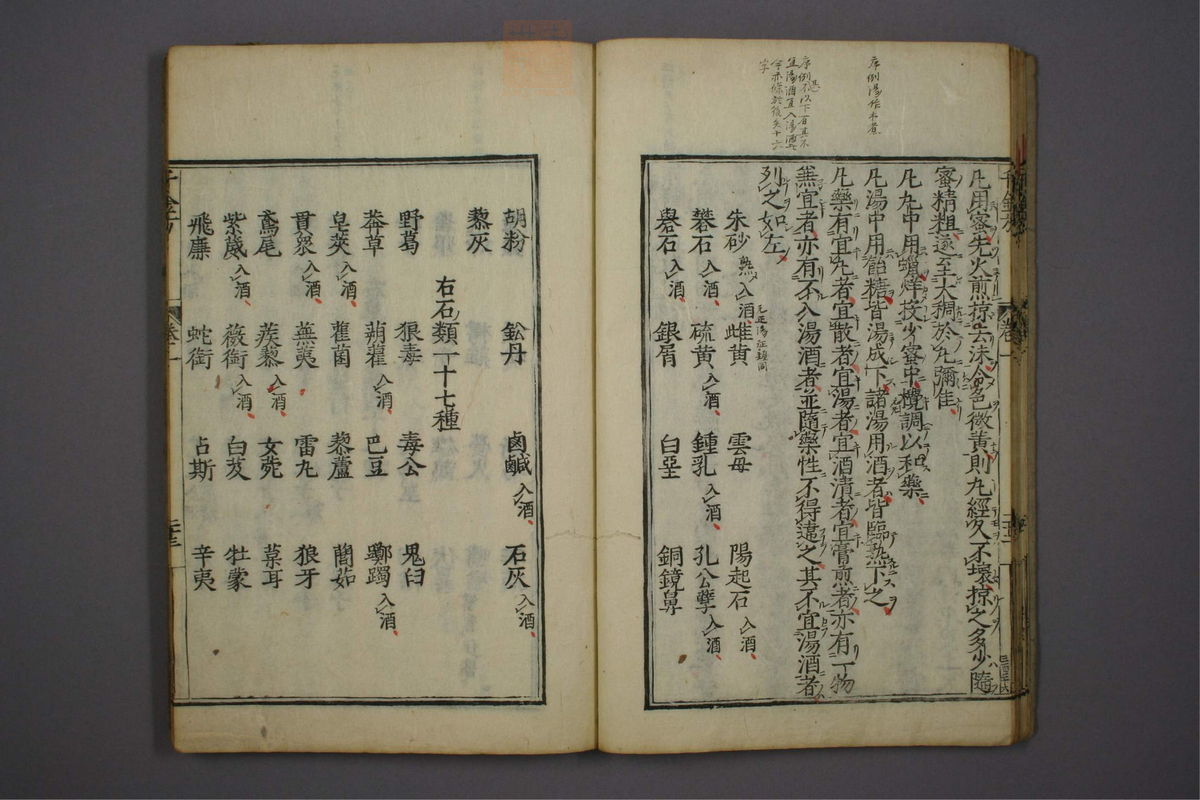 凡用蜜先火煎掠去沫令色微黃則丸經久不壞掠之多少隨
蜜精粗遂至大稠於丸彌佳
凡丸中用蠟烊投少蜜中攪調以和藥
凡湯中用飴糖皆湯成下諸湯用酒者皆臨熟下之
凡藥有宜丸者宜散者宜湯者宜酒漬者宜膏煎者亦有一物
兼宜者亦有不入湯酒者並隨藥性不得違之其不宜湯酒者
列之如左
朱砂 熟入酒 雌黃 雲母 陽起石 入酒
礬石 入酒 硫黃 入酒 鍾乳 入酒 孔公孽 入酒
礜石 銀屑 白堊 銅鏡鼻
胡粉 鈆丹 鹵鹹 入酒 石灰 入酒
藜灰
右石類一十七種
野葛 狼毒 毒公 鬼臼
莽草 蒴藋 入酒 巴豆 躑躅 入酒
皂莢 入酒 雚菌 藜蘆 䕡茹
貫衆 入酒 蕪荑 雷丸 狼牙
鳶尾 蒺藜 入酒 女菀 葈耳
紫葳 入酒 薇銜 入酒 白芨 牡蒙
飛廉 蛇銜 占斯 辛夷
序例湯作水煮
千金方
卷一